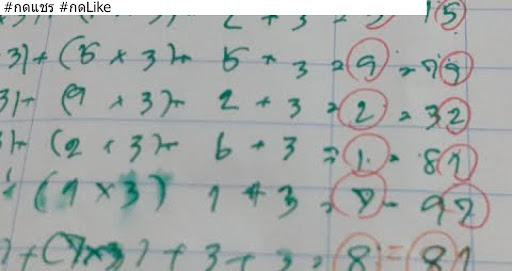 #กดแชร #กดLike
2 + 3 = 5 15
3)+ (5 x 3)+ 5 x 3 = 9 = 79
3)+ (9 x 3)+ 2 + 3 = 2 = 32
(2 x 3)+ 6 + 3 = 1 = 81
(1 x 3) 1 + 3 = 7 = 97
)+(7x3)+3+3=8=81